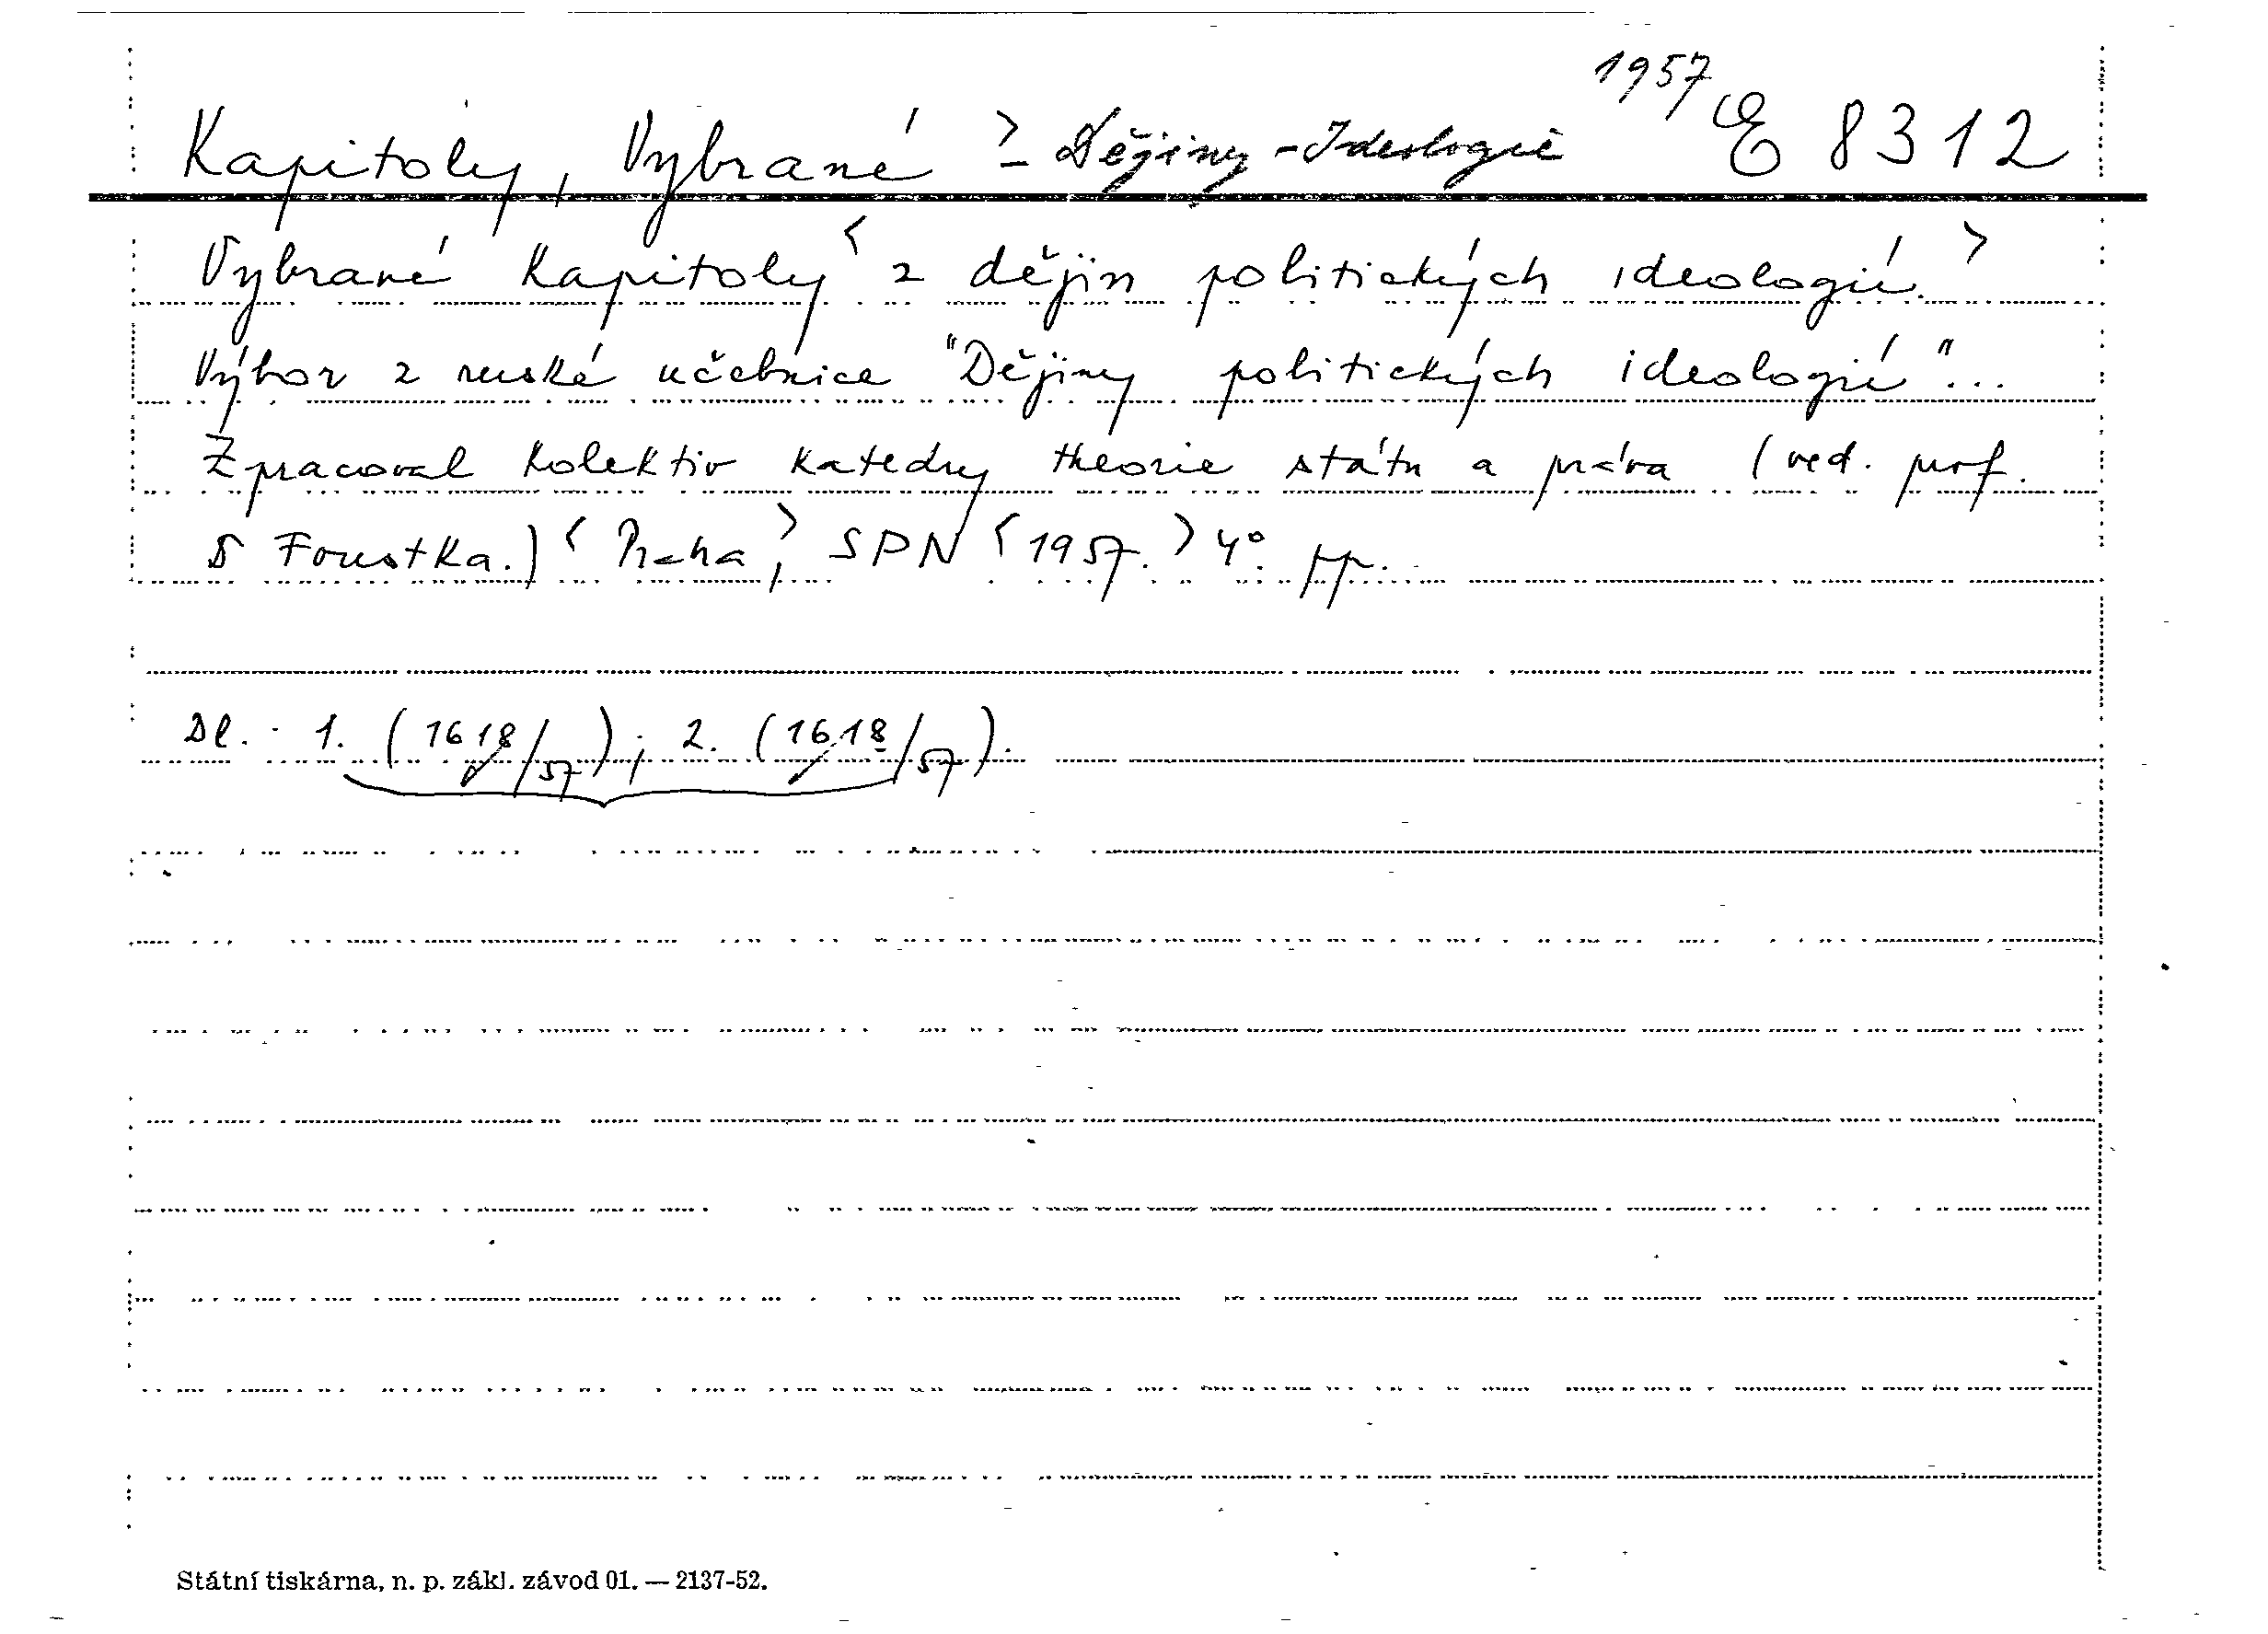 1957
Kapitoly, Vybrané > - Dějiny - Ideologie E 8312
Vybrané kapitoly < z dějin politických ideologií. >
Výbor z ruské učebnice "Dějiny politických ideologií"...
Zpracoval kolektiv katedry theorie státu a práva (ved. prf.
Foustka.) < Praha, > SPN < 1957. > 4°. pp.
Dl. 1. (1618/57); 2. (1618/57).
Státní tiskárna, n. p. zákl. závod 01. — 2137-52.